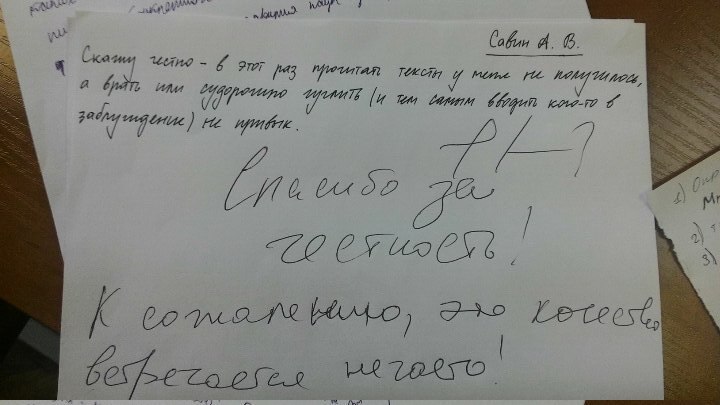 Савин А. В.
Скажу честно - в этот раз прочитать тексты у меня не получилось,
а врать или судорожно гуглить (и тем самым вводить кого-то в
заблуждение) не привык.
Спасибо за
честность!
К сожалению, это качество
встречается нечасто!
1)
2)
3)